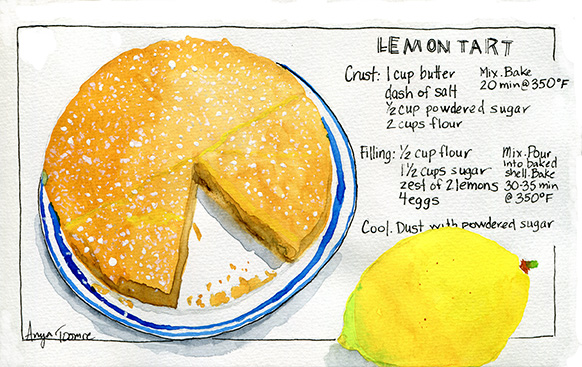 LEMON TART
Crust: 1 cup butter
dash of salt
½ cup powdered sugar
2 cups flour
Mix. Bake
20 min @ 350°F
Filling: ½ cup flour
1½ cups sugar
zest of 2 lemons
4 eggs
Mix. Pour
into baked
shell. Bake
30-35 min
@ 350°F
Cool. Dust with powdered sugar
Anya Toomre